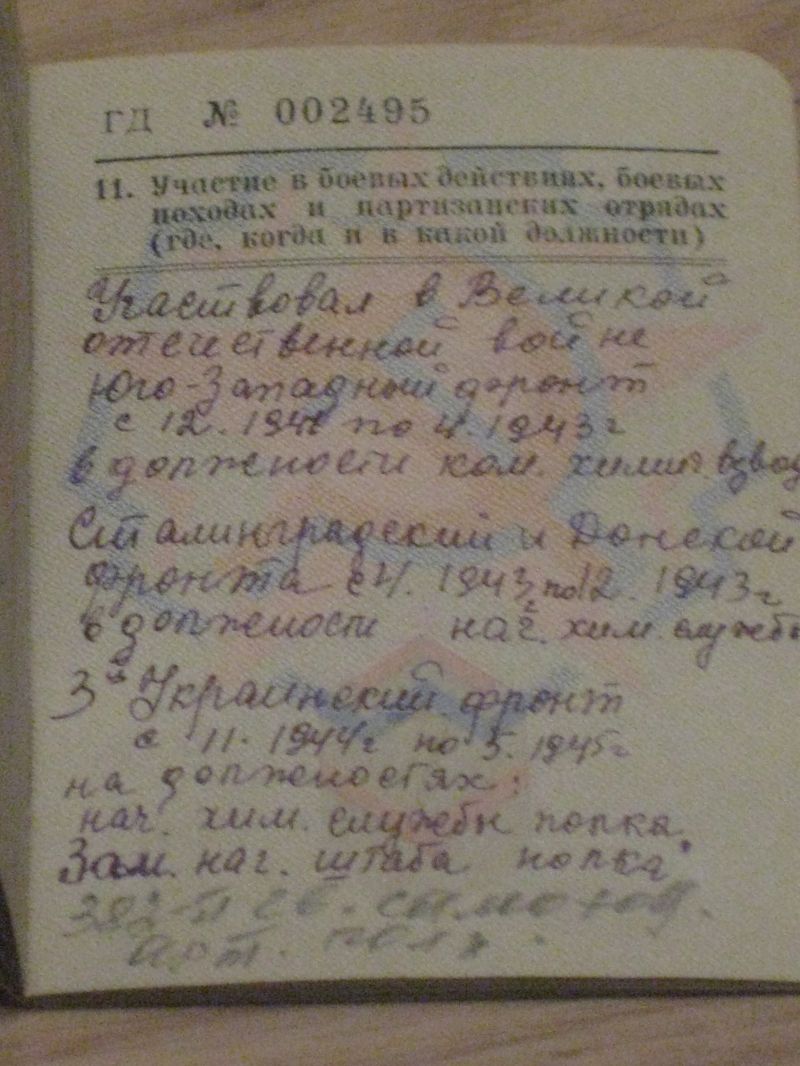 ГД № 002495
11. Участие в боевых действиях, боевых
походах и партизанских отрядах
(где, когда и в какой должности)
Участвовал в Великой
отечественной войне
Юго-Западный фронт
с 12. по 4. 1943 г
в должности ком. химич. взвод
Сталинградский и Донской
фронта с 4. 1943 г по 12. 1943 г
в должности нач. хим. службы
3й Украинский фронт
с 11. 1944 г по 5. 1945 г
на должностях:
нач. хим. службы полка
Зам. нач. штаба полка
арт.